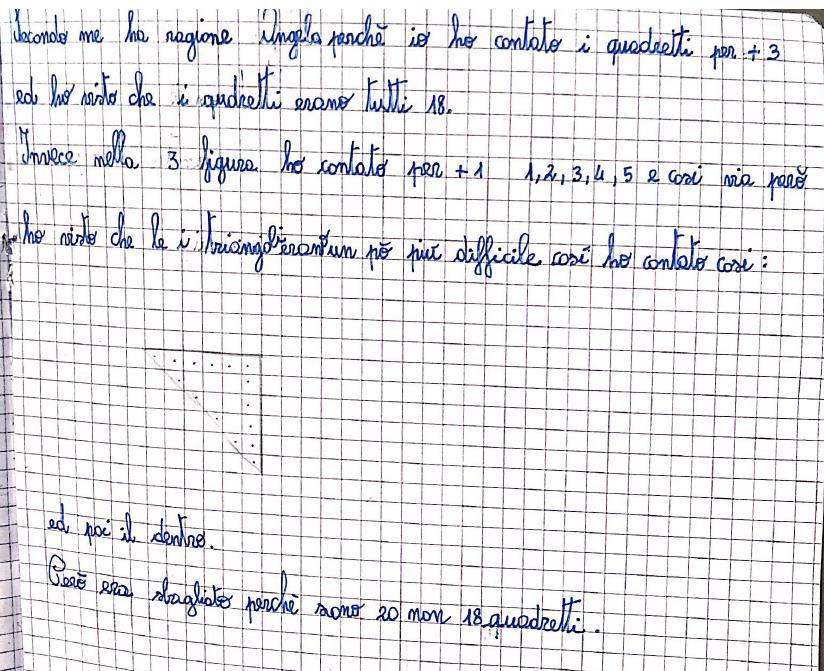 Secondo me ha ragione Angela perchè io ho contato i quadretti per + 3
ed ho visto che i qudretti erano tutti 18.
Invece nella 3 figura ho contato per + 1 1, 2, 3, 4, 5 e così via però
ho visto che le i un pò più difficile così ho contato così :
ed poi il dentro.
Però era sbagliato perchè sono 20 non 18 quadretti.